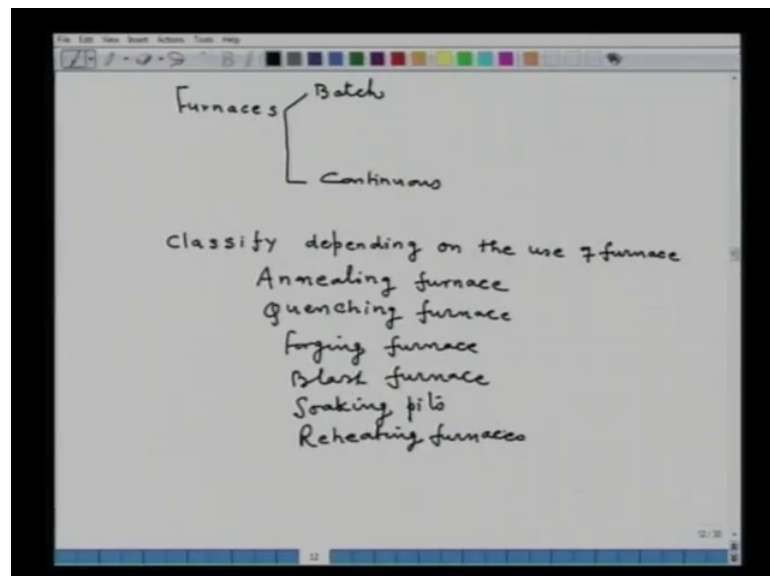 File Edit View Insert Actions Tools Help
Furnaces
Batch
Continuous
Classify depending on the use of furnace
Annealing furnace
Quenching furnace
Forging furnace
Blast furnace
Soaking pits
Reheating furnaces
12/30
12